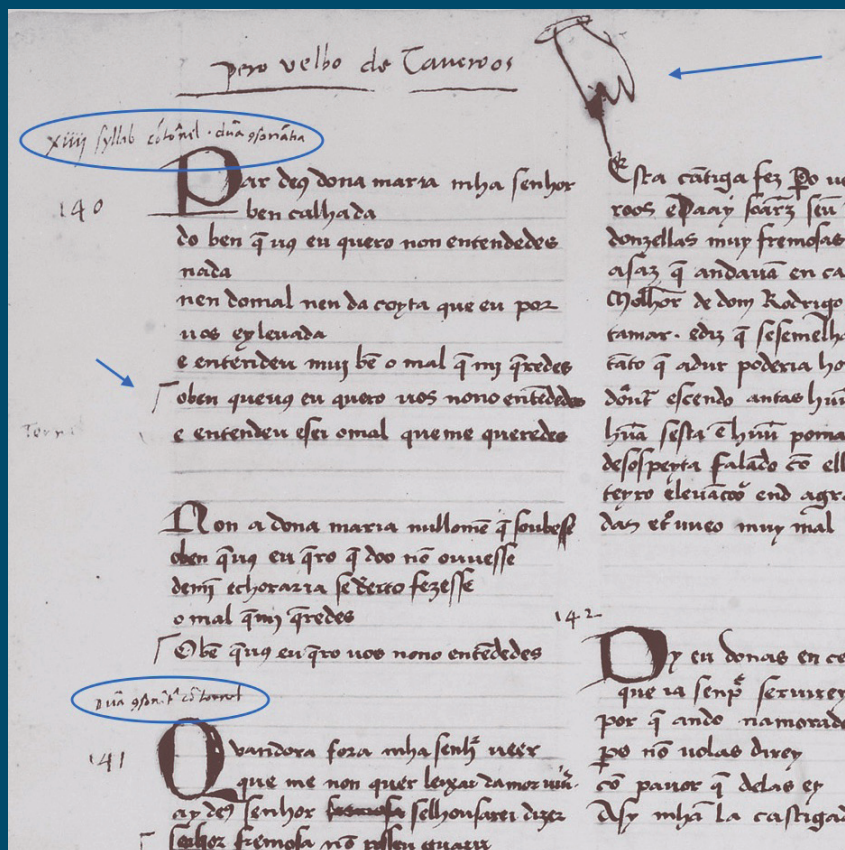 pero velho de Taveroos
xiiij syllab cõ tornel · dũa cõsonãtia
Par deꝯ dona maria mha senhor
140
ben calhada
do ben q̃ uꝯ eu quero non entendedes
nada
nen do mal nen da coyta que eu por
uos ey levada
e entendeu muj bẽ o mal q̃ mj q̃redes
oben queuꝯ eu quero uos nono entẽdedes
e entendeu esei omal queme queredes
Torn
Non a dona maria nullomẽ q̃ soubesse
oben q̃uꝯ eu q̃ro q̃ doo nõ ouuesse
demj̃ echoraria se derto fezesse
o mal q̃mj q̃redes
Obẽ q̃uꝯ eu q̃ro uos nono entẽdedes
dũa cõ tornel
141
Quandora fora mha senhr̃ ueer
que me non quer leixar damor
ay deꝯ senhor fremosa selhousarei dizer
senhor fremosa nõ
Esta cãtiga fez Pero ue
roos e Paay soarz seu
donzellas muy fremosas
asaz q̃ andauã en ca
Molhor de dom Rodrigo
tamar · ediz q̃ sesemelha
tãto q̃ adur poderia ho
escendo antas hũu
hũa sesta ẽ hũu poma
desospeyta falãdo cõ ell
teyro end agra
das et ueo muy mal
142
Dy eu donas en ce
que ia senp̃ seruirey
por q̃ ando namorado
pero nõ uolas direy
cõ pauor q̃ delas ey
Asy mhã la castigad